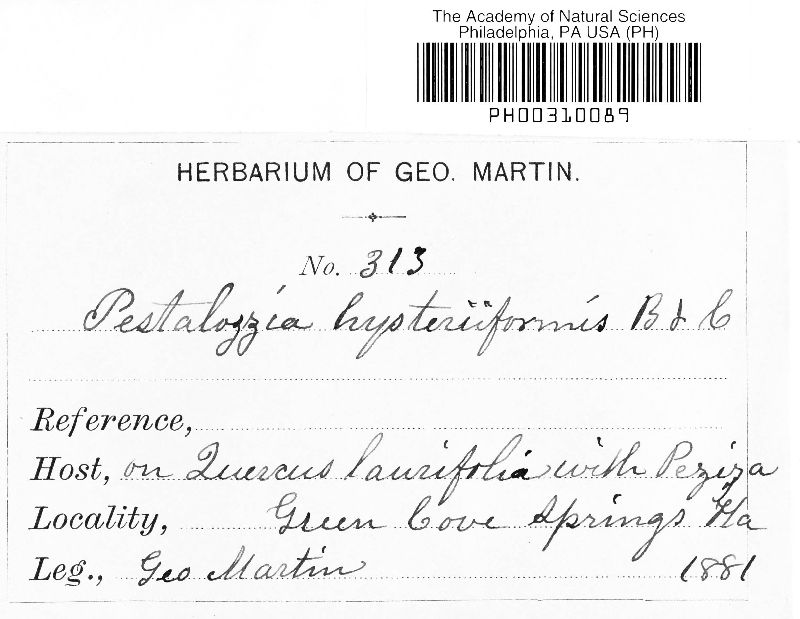 The Academy of Natural Sciences
Philadelphia, PA USA (PH)
PH00310089
HERBARIUM OF GEO. MARTIN.
No. 313
Pestalozzia hysteriiformis B & C
Reference,
Host, on Quercus laurifolia with Peziza
Locality, Green Cove Springs Fla
Leg., Geo Martin 1881